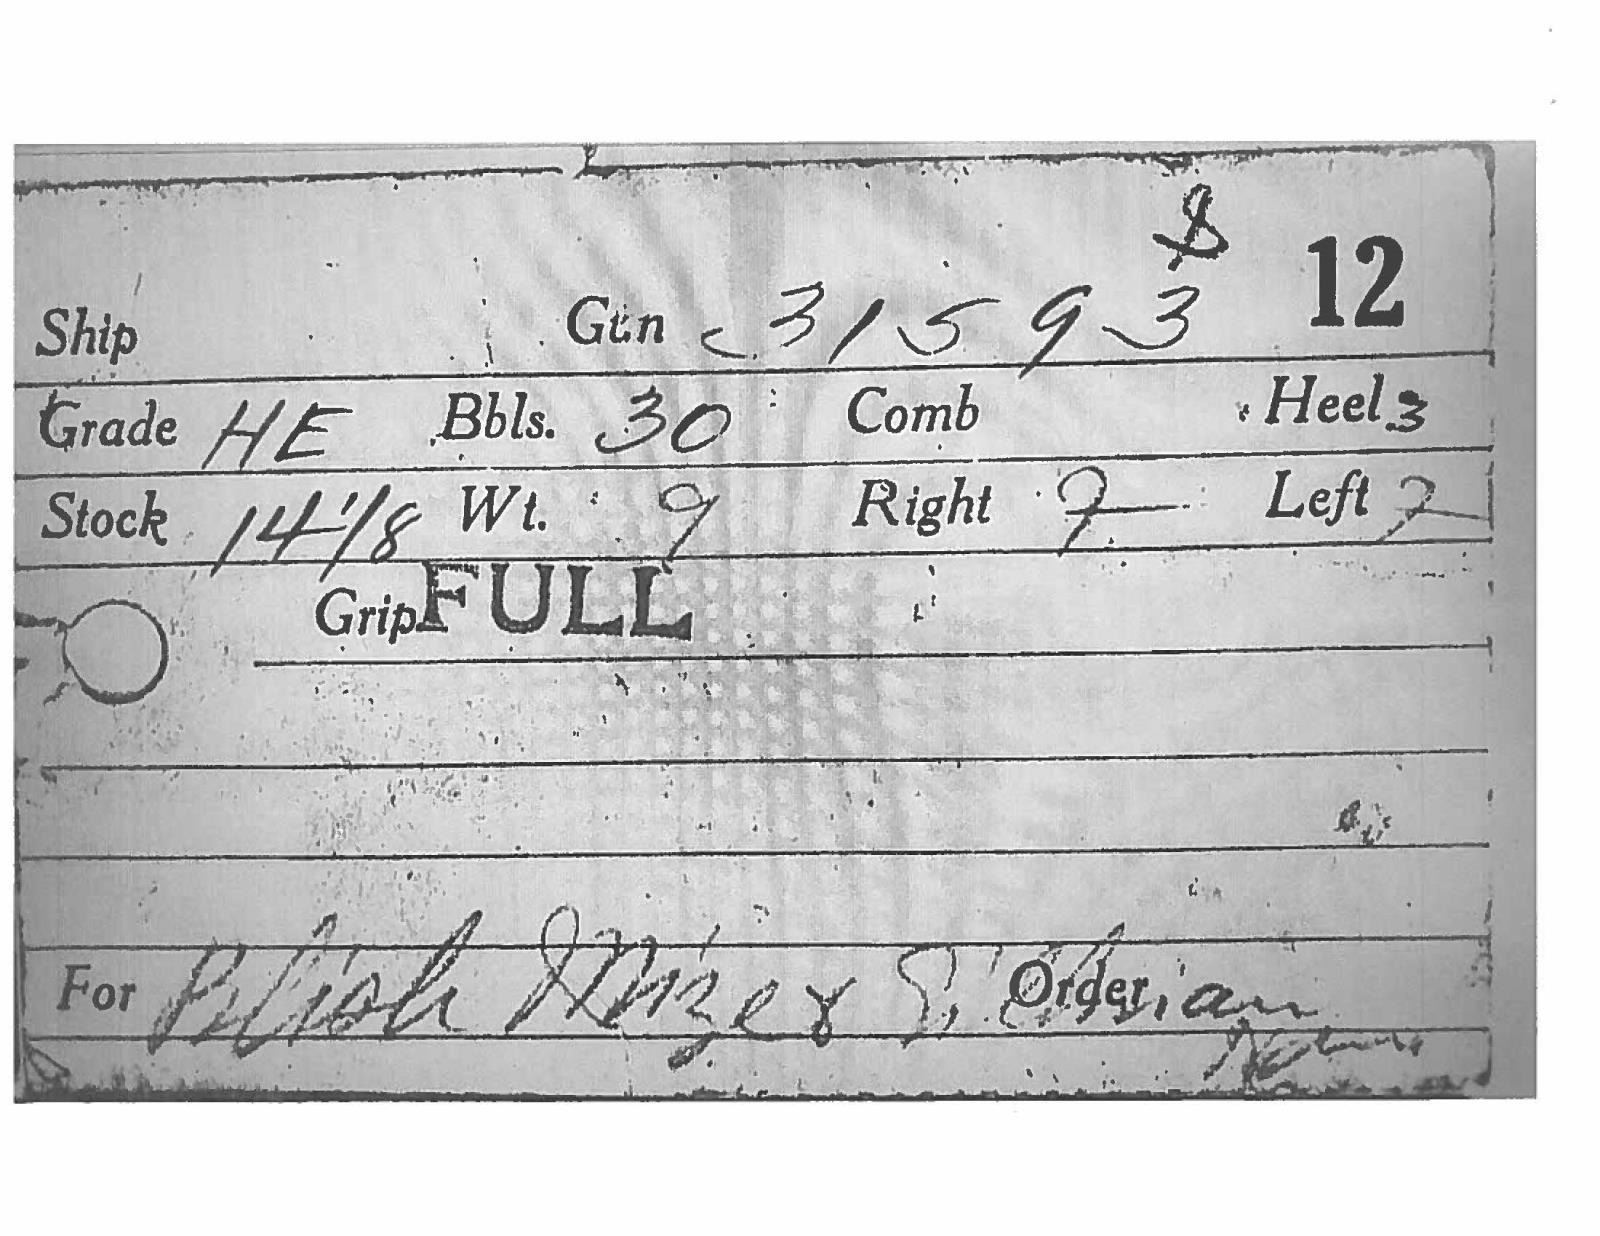 12
Ship Gun 31593
Grade HE Bbls. 30 Comb Heel 3
Stock 14 1/8 Wt. 9 Right 7 Left 7
Grip FULL
For Order